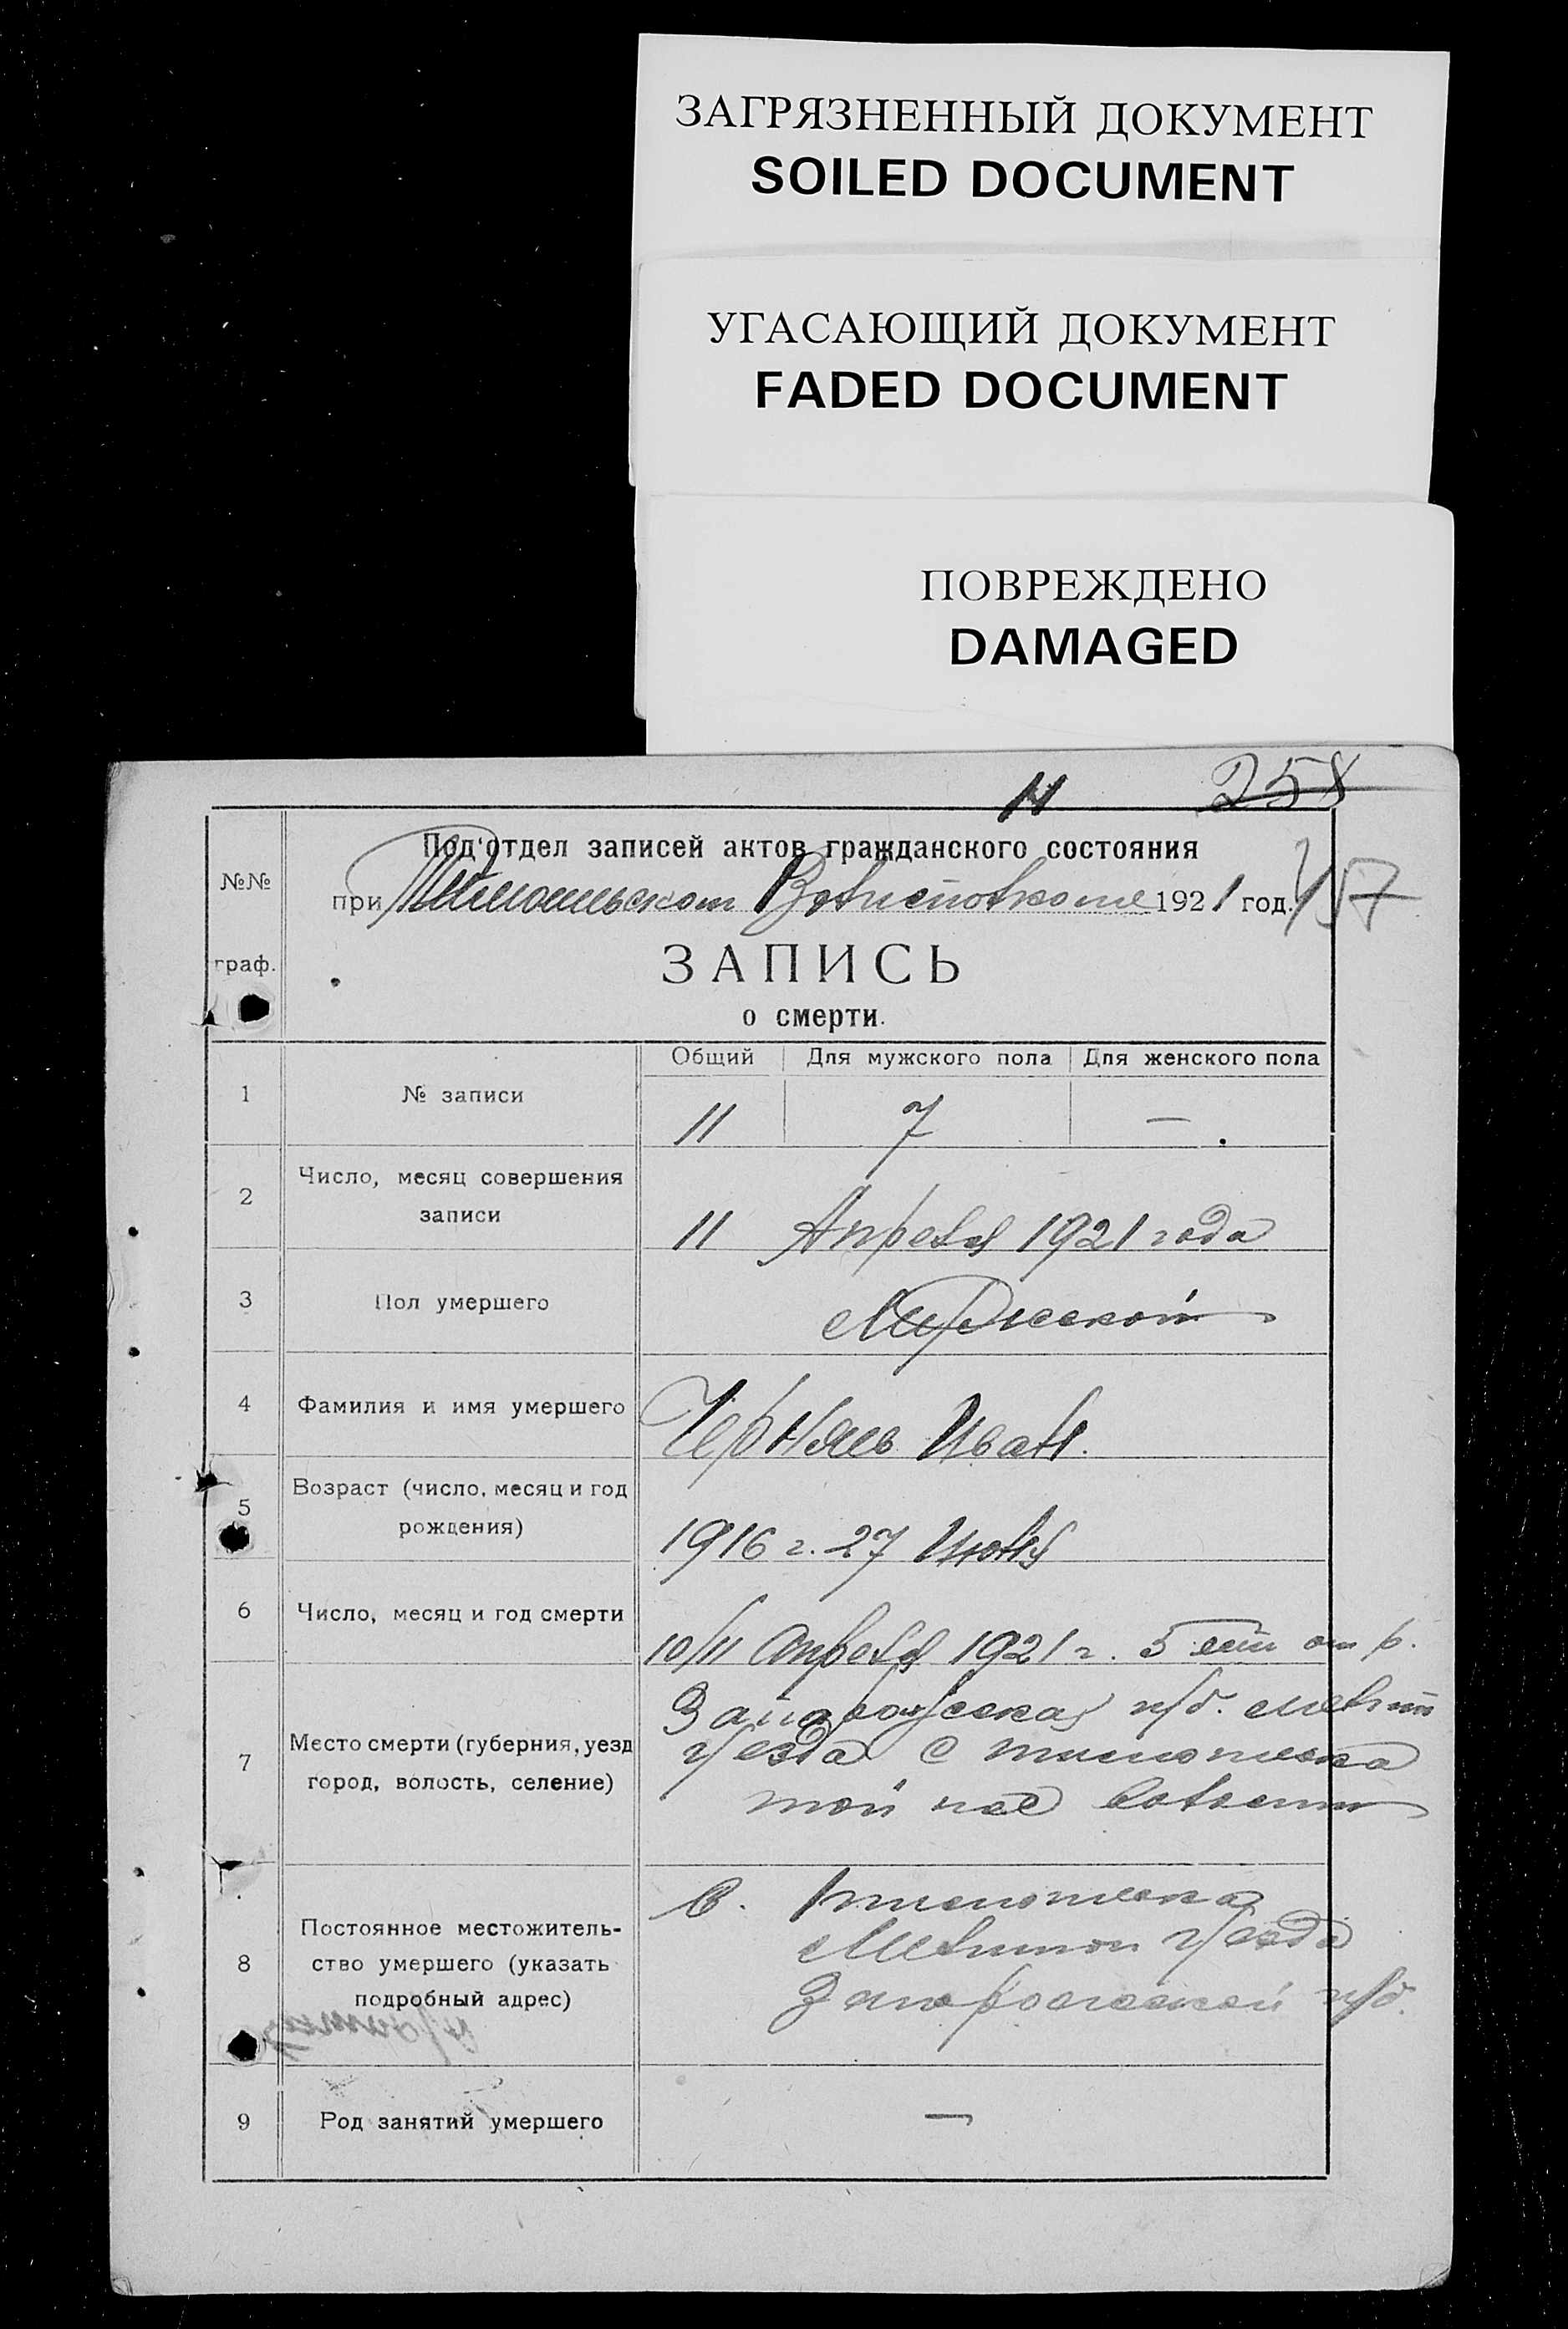 ЗАГРЯЗНЕННЫЙ ДОКУМЕНТ
SOILED DOCUMENT
УГАСАЮЩИЙ ДОКУМЕНТ
FADED DOCUMENT
ПОВРЕЖДЕНО
DAMAGED
258
Под'отдел записей актов гражданского состояния
№№
при 1921 год.
457
граф.
ЗАПИСЬ
о смерти.
Общий Для мужского пола Для женского пола
1 № записи 11 7 —
2 Число, месяц совершения
записи 11 Апреля 1921 года
3 Пол умершего Мужской
4 Фамилия и имя умершего Иван.
5 Возраст (число, месяц и год
рождения) 1916 г. 27 Июня
6 Число, месяц и год смерти 10/11 Апреля 1921 г. 5 лет от р.
Запорожская губ.
7 Место смерти (губерния, уезд уезда с
город, волость, селение) той же волости
8 Постоянное местожитель-
ство умершего (указать уезда
подробный адрес) Запорожской губ.
9 Род занятий умершего —